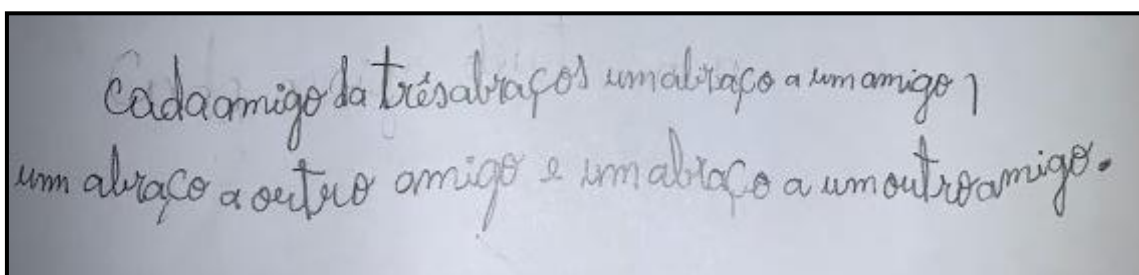 Cada amigo da três abraços um abraço a um amigo,
um abraço a outro amigo e um abraço a um outro amigo.